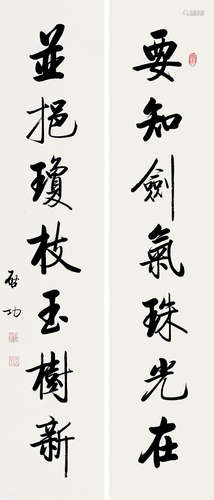 要知劍氣珠光在
並挹瓊枝玉樹新
啟功